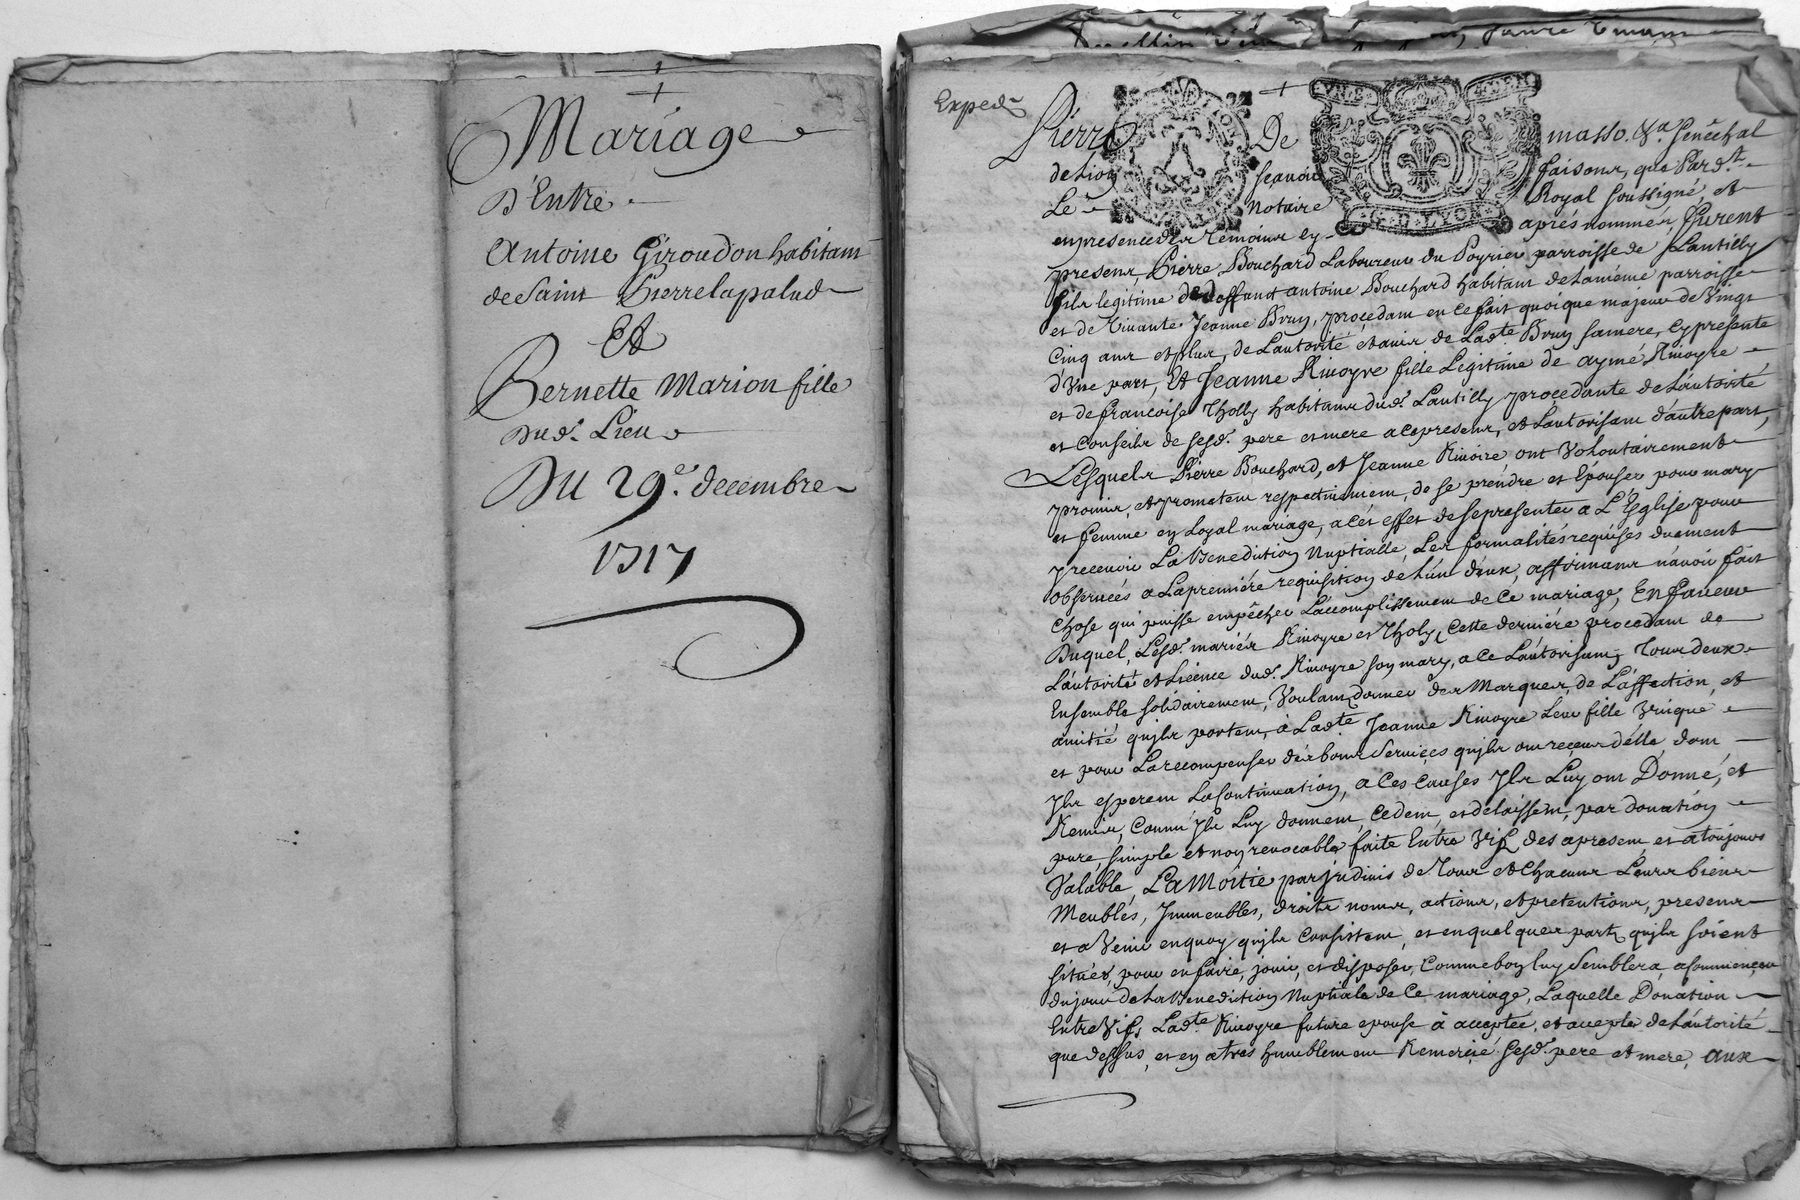 Mariage
D'Entre
Antoine Giroudon habitant
de Saint Pierre lapalud
Et
Bernette Marion fille
Dud. Lieu
Du 29e. decembre
1717
Exped
Pierre De masso. &a Senêchal
de Lion sçavoir faisons, que Pard.t
Le notaire Royal soussigné, et
en presence des temoins cy après nommez, furent
presens, Pierre Bouchard Laboureur du Poyrier parroisse de Lantilly
fils legitime de deffunct antoine Bouchard habitant de la méme parroisse
et de vivante Jeanne Brun, procedant en ce fait quoique majeur de vingt
Cinq ans et plus, de Lautorité et avis de Lad.te Brun sa mere, cy presente
d'Une part, Et Jeanne Rivoyre fille Legitime de aymé Rivoyre
et de francoise Tholy habitans dud. Lantilly procedante de L'autorité
et Conseils de sesd. pere et mere a ce presens, et Lautorisant d'autre part,
Lesquels Pierre Bouchard, et Jeanne Rivoire ont Volontairement
promis, et promettent respectivement, de se prendre et Epouser pour mary
et femme en Loyal mariage, a cet effet de se presenter a L'Eglise pour
y recevoir La Benediction Nuptialle, Les formalités requises duement
observées a La premiére requisition de L'un deux, affirmans n'avoir fait
Chose qui puisse empêcher L'accomplissement de Ce mariage, En faveur
Duquel, Lesd. mariés Rivoyre et Tholy, Cette derniére procedant de
L'autorité et Licence dud. Rivoyre son mary, a ce L'autorisant, Tous deux
Ensemble solidairement, Voulant donner des Marques, de L'affection, et
amitié qu'jls portent, à Lad.te Jeanne Rivoyre Leur fille Unique
et pour La recompenser des bons Services qu'jls ont reçeus d'elle, dont
Jls esperent La Continuation, a Ces Causes Jls Luy ont Donné, et
Remis, Comme Jls Luy donnent, Cedent, et delaissent, par donation
pure, simple et non revocable faite Entre Vifs des a present, et a toujours
Valable, La Moitié par jndivis de Tous et Chacuns Leurs biens
Meubles, Jmmeubles, droits noms, actions, et pretentions, presens
et a Venir en quoy qu'jls Consistent, et en quelques parts qu'jls soient
situés, pour en faire, jouir, et disposer, Comme bon luy Semblera, a Commencer
du jour de La Benediction Nuptiale de Ce mariage, Laquelle Donation
Entre Vifs, Lad.te Rivoyre future epouse à acceptée, et accepte de L'autorité
que dessus, et en a tres humblement Remercié sesd. pere et mere, aux